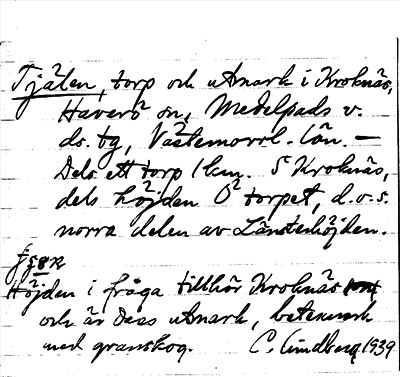 Tjälen, torp och utmark i Kroknäs,
Haverö sn, Medelpads v.
ds. tg, Västernorrl. län. —
Dels ett torp 1 km. S Kroknäs,
dels höjden O torpet, d.v.s.
norra delen av Länsterhöjden.
Höjden i fråga tillhör Kroknäs
och är dess utmark, betesmark
med granskog. C. Lindberg 1939